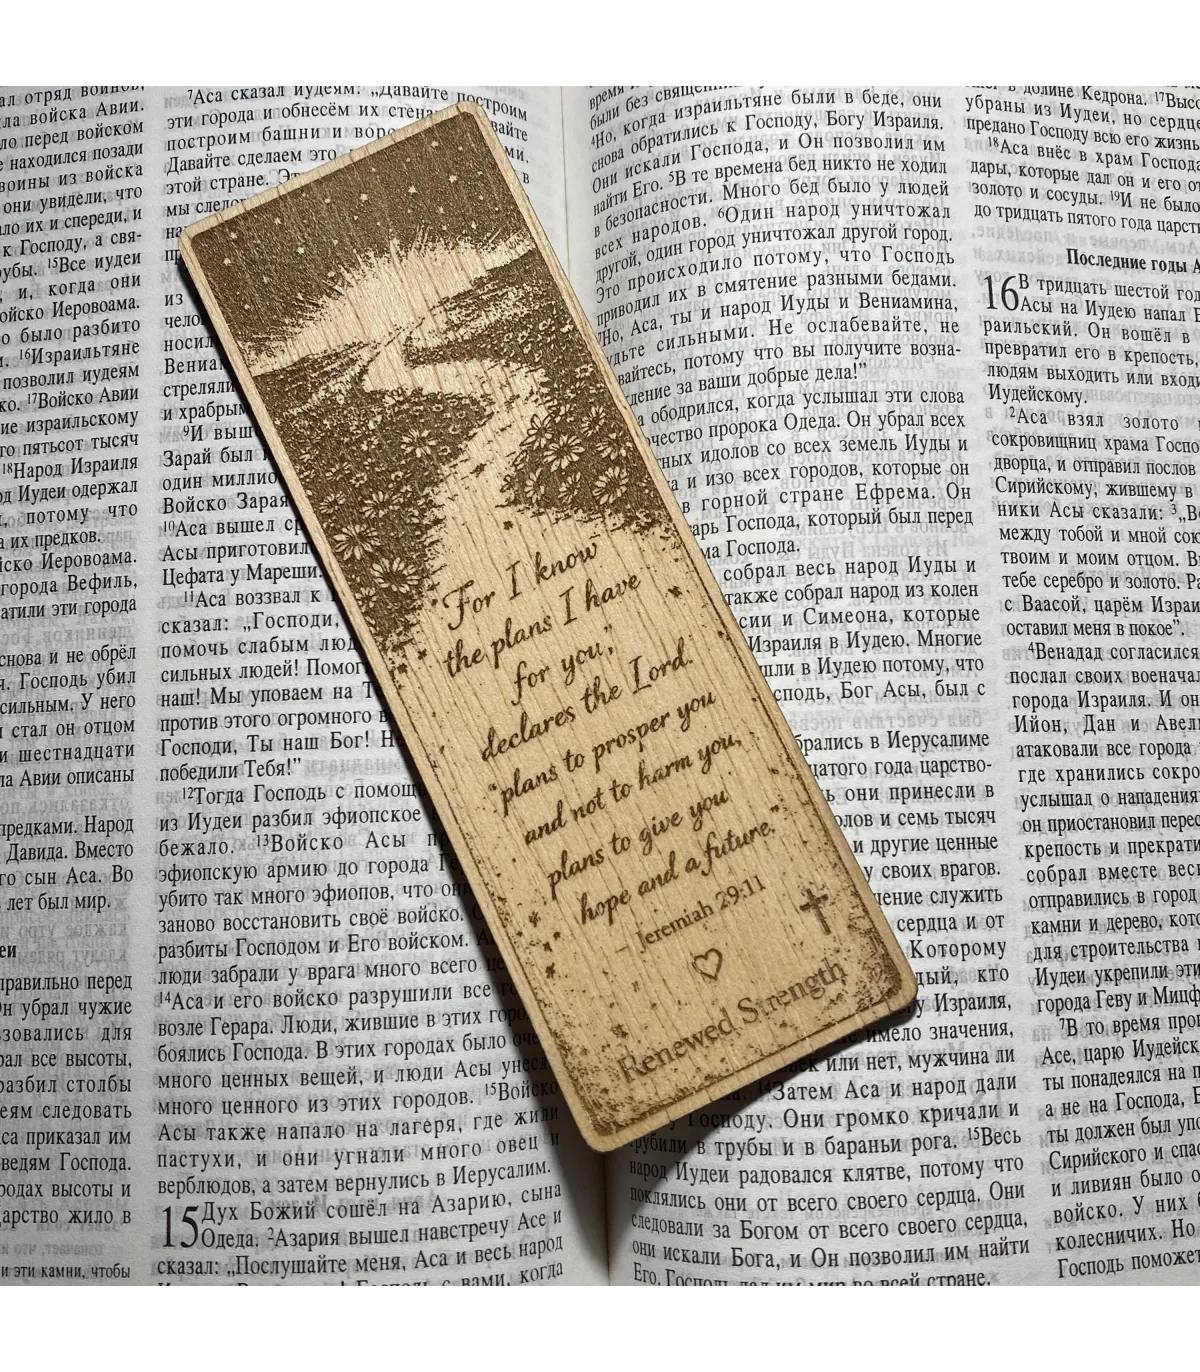 ал отряд воинов,
ла войска Авии.
ло перед войском
е находился позади
воины из войска
они увидели, что
ало их и спереди, и
к Господу, а свя-
рубы. ¹⁵Все иудеи
и, когда они
ойско Иеровоама.
о было разбито
и. ¹⁶Израильтяне
позволил иудеям
ко. ¹⁷Войско Авии
ие израильскому
то пятьсот тысяч
¹⁸Народ Израиля
од Иудеи одержал
, потому что
а их предков.
йско Иеровоама.
города Вефиль,
ватили эти города
снова и не обрёл
я. Господь убил
сильным. У него
стал он отцом
и шестнадцати
ла Авии описаны
предками. Народ
Давида. Вместо
го сын Аса. Во
лет был мир.
еи
правильно перед
Он убрал чужие
зовались для
рал все высоты,
разбил столбы
еям следовать
са приказал им
ведям Господа.
родах высоты и
дарство жило в
и эти камни, чтобы
⁷Аса сказал иудеям: „Давайте построим
эти города и обнесём их стена
построим башни и воро
Давайте сделаем это
этой стране.
мы следо
из
чело
носил
Вениа
стреляли
и храбрым
⁹И выш
Зарай был
один миллио
Войско Зарая
¹⁰Аса вышел ср
Асы приготовил
Цефата у Мареши.
¹¹Аса воззвал к
сказал: „Господи,
помочь слабым люд
сильных людей! Помог
наш! Мы уповаем на Т
против этого огромного в
Господи, Ты наш Бог! Не
победили Тебя!”
¹²Тогда Господь с помощ
из Иудеи разбил эфиопское
бежало. ¹³Войско Асы п
эфиопскую армию до города Ге
убито так много эфиопов, что они
заново восстановить своё войско.
разбиты Господом и Его войском.
люди забрали у врага много всего це
¹⁴Аса и его войско разрушили все го
возле Герара. Люди, жившие в этих горо
боялись Господа. В этих городах было оче
много ценных вещей, и люди Асы унесл
много ценного из этих городов. ¹⁵Войско
Асы также напало на лагеря, где жили
пастухи, и они угнали много овец и
верблюдов, а затем вернулись в Иерусалим.
15 Дух Божий сошёл на Азарию, сына
Одеда. ²Азария вышел навстречу Асе и
сказал: „Послушайте меня, Аса и весь народ
с вами, когда
"For I know
the plans I have
for you,"
declares the Lord.
"plans to prosper you
and not to harm you,
plans to give you
hope and a future."
— Jeremiah 29:11
Renewed Strength
время
были без священ
⁴Но, когда израильтяне были в беде, они
снова обратились к Господу, Богу Израиля.
Они искали Господа, и Он позволил им
найти Его. ⁵В те времена бед никто не ходил
в безопасности. Много бед было у людей
всех народов. ⁶Один народ уничтожал
другой, один город уничтожал другой город.
Это происходило потому, что Господь
приводил их в смятение разными бедами.
⁷Но, Аса, ты и народ Иуды и Вениамина,
удьте сильными. Не ослабевайте, не
вайтесь, потому что вы получите возна-
дение за ваши добрые дела!”
а ободрился, когда услышал эти слова
очество пророка Одеда. Он убрал всех
ных идолов со всех земель Иуды и
а и изо всех городов, которые он
в горной стране Ефрема. Он
арь Господа, который был перед
ма Господа.
собрал весь народ Иуды и
также собрал народ из колен
сии и Симеона, которые
Израиля в Иудею. Многие
ли в Иудею потому, что
сподь, Бог Асы, был с
брались в Иерусалиме
цатого года царство-
ь они принесли в
олов и семь тысяч
и другие ценные
у своих врагов.
ение служить
сердца и от
Которому
дый, кто
у Израиля,
имело значения,
век или нет, мужчина ли
на. ¹⁴Затем Аса и народ дали
у Господу. Они громко кричали и
трубили в трубы и в бараньи рога. ¹⁵Весь
народ Иудеи радовался клятве, потому что
поклялись они от всего своего сердца. Они
следовали за Богом от всего своего сердца,
они искали Бога, и Он позволил им найти
Его. Господь дал им мир во всей стране.
в долине Кедрона. ¹⁷Высо
убраны из Иудеи, но сердце
предано Господу всю его жизнь
¹⁸Аса внёс в храм Господа
дары, которые дал он и его от
золото и сосуды. ¹⁹И не было
до тридцать пятого года царств
Последние годы А
16 В тридцать шестой год
Асы на Иудею напал В
раильский. Он вошёл в
превратил его в крепость,
людям выходить или входи
Иудейскому.
²Аса взял золото
сокровищниц храма Госпо
дворца, и отправил послов
Сирийскому, жившему в
ники Асы сказали: ³„В
между тобой и мной сою
твоим и моим отцом. В
тебе серебро и золото. Ра
с Ваасой, царём Израи
оставил меня в покое”.
⁴Венадад согласился
послал своих военачал
города Израиля. И он
Ийон, Дан и Авел
атаковали все города
где хранились сокро
услышал о нападения
он приостановил перес
крепость и прекрати
собрал вместе весь
отправились в город
камни и дерево, кото
для строительства
Иудеи укрепили эти
города Геву и Мицф
⁷В то время прор
Асе, царю Иудейск
ты понадеялся на п
а не на Господа, Б
ты должен был упо
Сирийского и спас
и ливиян было о
войско. У них
колесничих. Но
Господь поможе